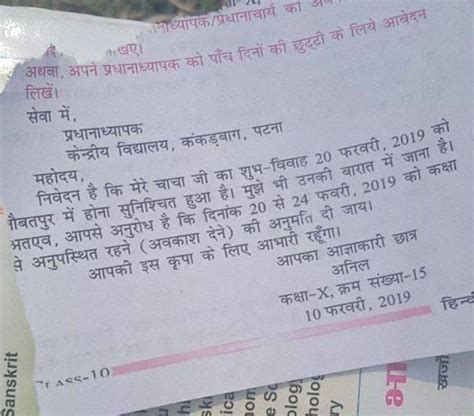 प्रधानाध्यापक/प्रधानाचार्य को
अथवा, अपने प्रधानाध्यापक को पाँच दिनों की छुट्टी के लिये आवेदन
लिखें।
सेवा में,
प्रधानाध्यापक
केन्द्रीय विद्यालय, कंकड़बाग, पटना
महोदय,
निवेदन है कि मेरे चाचा जी का शुभ-विवाह 20 फरवरी, 2019 को
नौबतपुर में होना सुनिश्चित हुआ है। मुझे भी उनकी बारात में जाना है।
अतएव, आपसे अनुरोध है कि दिनांक 20 से 24 फवरी, 2019 को कक्षा
से अनुपस्थित रहने (अवकाश देने) की अनुमति दी जाय।
आपकी इस कृपा के लिए आभारी रहूँगा।
आपका आज्ञाकारी छात्र
अनिल
कक्षा-X, क्रम संख्या-15
10 फरवरी, 2019
CLASS-10
Sanskrit